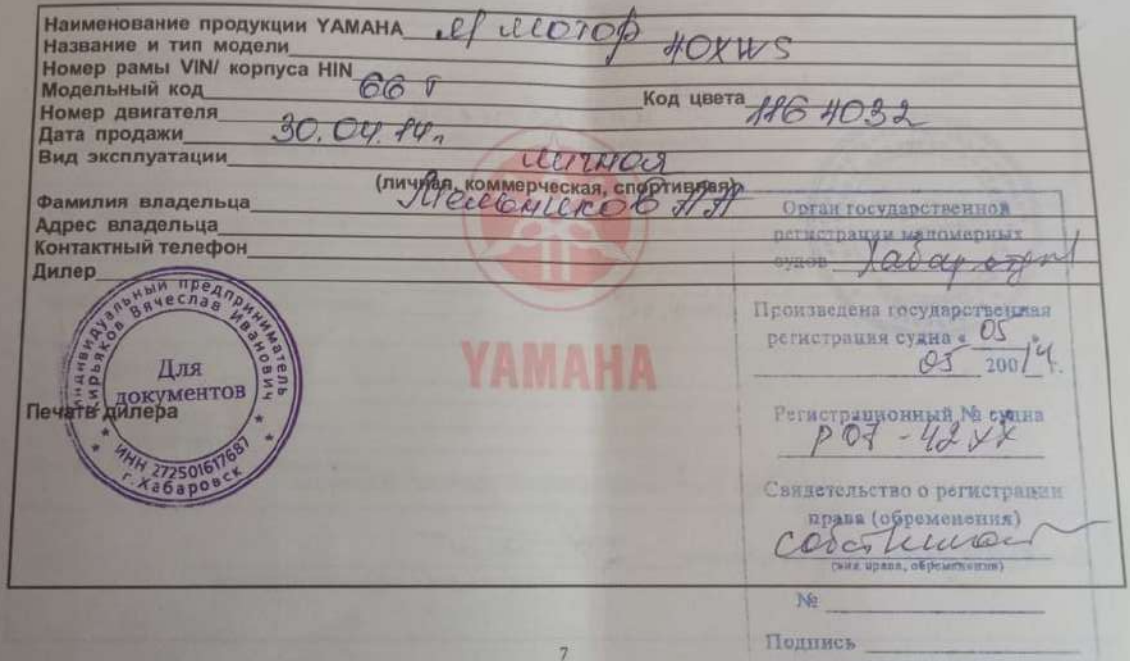 Наименование продукции YAMAHA М мотор
Название и тип модели 40XWS
Номер рамы VIN/ корпуса HIN
Модельный код 66T Код цвета
Номер двигателя 1164032
Дата продажи 30.04.14г
Вид эксплуатации личная
(личная, коммерческая, спортивная)
Фамилия владельца АА
Адрес владельца
Контактный телефон
Дилер
Индивидуальный предприниматель
Кирьяков Вячеслав Иванович
Для
документов
ИНН 272501617687
г. Хабаровск
Печать дилера
YAMAHA
Орган государственной
регистрации маломерных
судов Хабар
Произведена государственная
регистрация судна « 05 »
05 200/14.
Регистрационный № судна
Р07-42ХХ
Свидетельство о регистрации
права (обременения)
(вид права, обременения)
№
Подпись
7